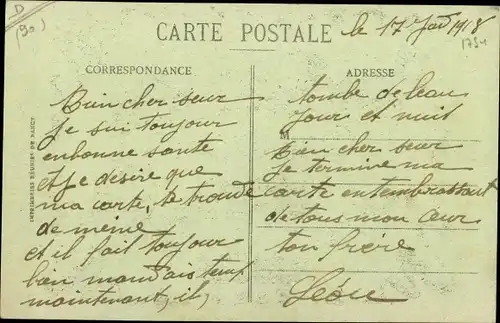 D
(30)
CARTE POSTALE
le 17 Jan 1918
1754
CORRESPONDANCE
Bien cher seur
Je sui toujour
en bonne sante
et je désire que
ma carte, te troude
de meine
et il fait toujour
bien mauvais temp
maintenant, il,
ADRESSE
tombe de leau
jour et nuit
M
Bien cher seur
Je termine ma
carte en tembrassant
de tous mon cœur
ton frère
Léon
IMPRIMERIES RÉUNIES DE NANCY